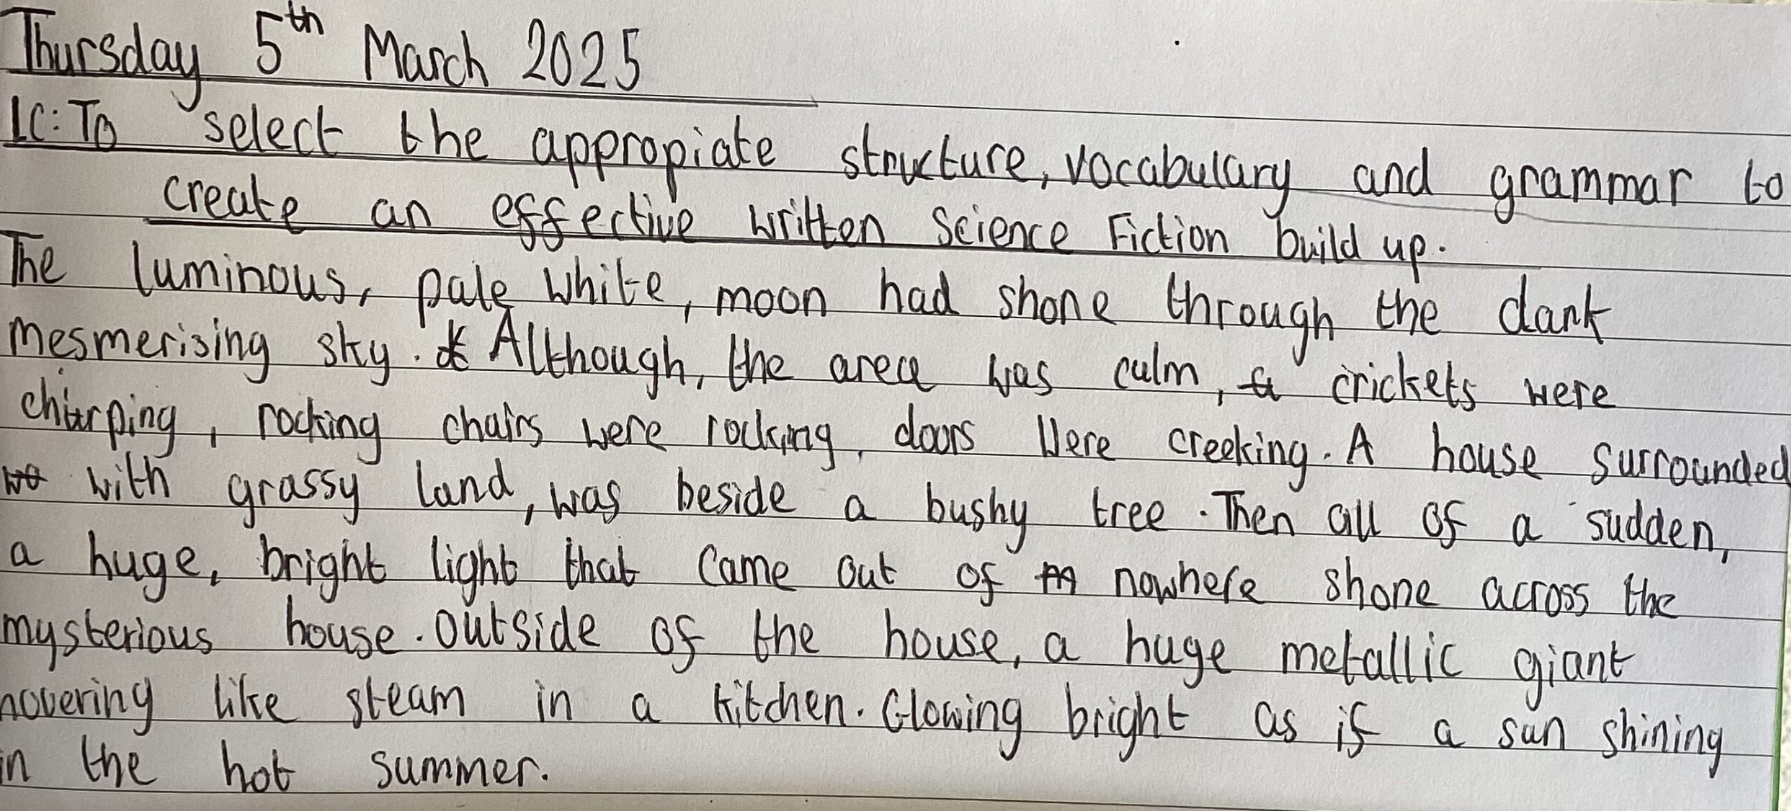 Thursday 5th March 2025
LC: To select the appropiate structure, vocabulary and grammar to
create an effective written Science Fiction build up.
The luminous, pale white, moon had shone through the dark
mesmerising sky. Although, the area was culm, crickets were
chirping, rocking chairs were rocking, doors were creeking. A house surrounded
with grassy land, was beside a bushy tree. Then all of a sudden,
a huge, bright light that came out of nowhere shone across the
mysterious house. Outside of the house, a huge metallic giant
hovering like steam in a kitchen. Glowing bright as if a sun shining
in the hot summer.